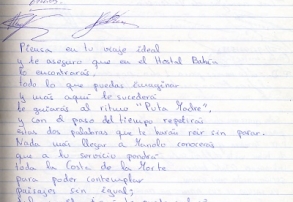 Piensa en tu viaje ideal
y te aseguro que en el Hostal Bahía
lo encontrarás,
todo lo que puedas imaginar
y más aquí te sucederá
te guiarás al ritmo "Puta Madre",
y con el paso del tiempo repetirás
estas dos palabras que te harán reir sin parar.
Nada más llegar a Manolo conocerás
que a tu servicio pondrá
toda la Costa de la Morte
para poder contemplar
paisajes sin igual;